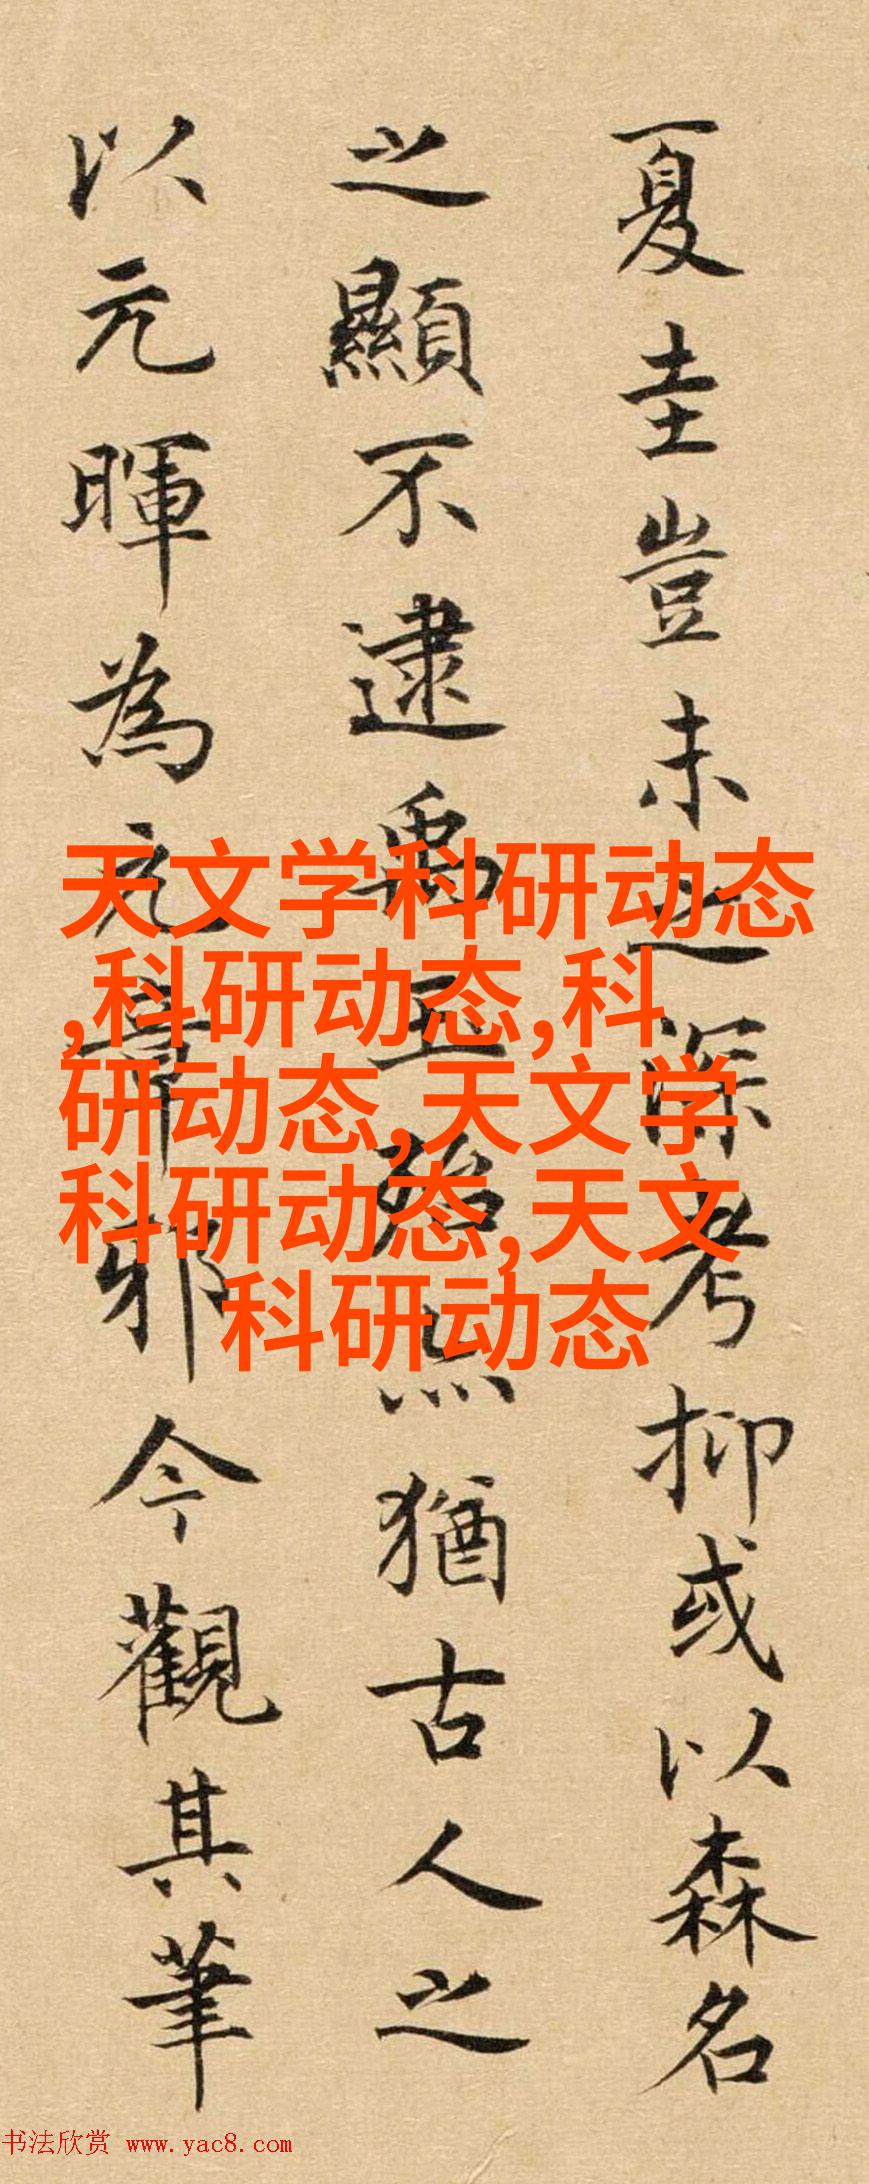 夏圭豈未之深考抑或以森名
之顯不逮禹玉殆亦猶古人之
以元暉為元章邪今觀其筆
天文学科研动态
,科研动态,科
研动态,天文学
科研动态,天文
科研动态
书法欣赏 www.yac8.com